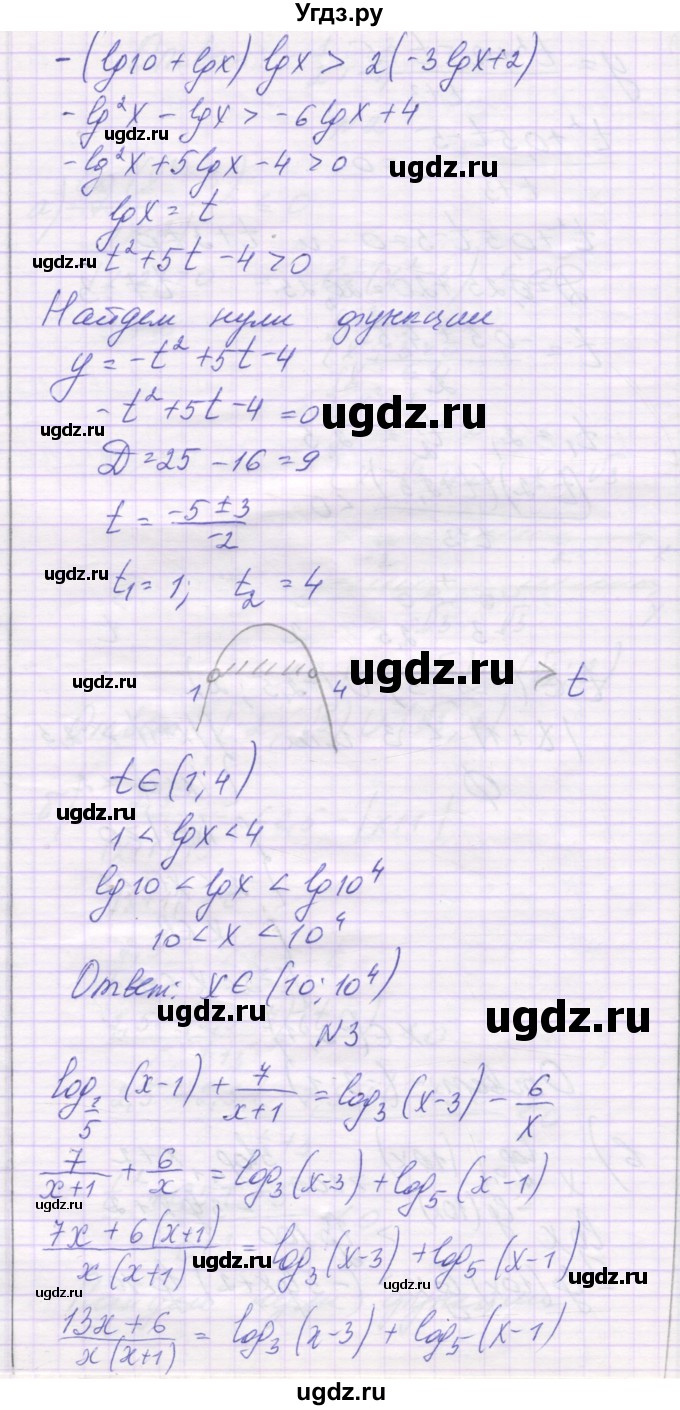 Угдз.ру
-(lg10 + lgx) lgx > 2(-3lgx+2)
-lg²x - lgx > -6lgx + 4
ugdz.ru
-lg²x + 5lgx - 4 > 0
ugdz.ru
lgx = t
ugdz.ru
t² + 5t - 4 > 0
Найдем нули функции
y = -t² + 5t - 4
-t² + 5t - 4 = 0
ugdz.ru
ugdz.ru
Д = 25 - 16 = 9
t = (-5 ± 3)/(-2)
ugdz.ru
t₁ = 1; t₂ = 4
ugdz.ru
ugdz.ru
1 4 t
t ∈ (1; 4)
ugdz.ru
1 < lgx < 4
lg10 < lgx < lg10⁴
10 < x < 10⁴
Ответ: x ∈ (10; 10⁴)
ugdz.ru
ugdz.ru
N3
log_{1/5} (x-1) + 7/(x+1) = log₃(x-3) - 6/x
7/(x+1) + 6/x = log₃(x-3) + log₅(x-1)
ugdz.ru
(7x + 6(x+1))/(x(x+1)) = log₃(x-3) + log₅(x-1)
ugdz.ru
ugdz.ru
ugdz.ru
(13x + 6)/(x(x+1)) = log₃(x-3) + log₅(x-1)
ugdz.ru